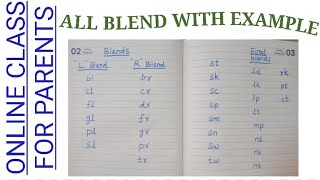 ONLINE CLASS
FOR PARENTS
ALL BLEND WITH EXAMPLE
02
Blends
"L" Blend "R" Blend
bl br
cl cr
fl dr
gl fr
pl gr
sl pr
tr
03
Final
blends
st ld rk
sk lk pt
sc lp ct
sp lt
sm mp
sn nd
sw
tw